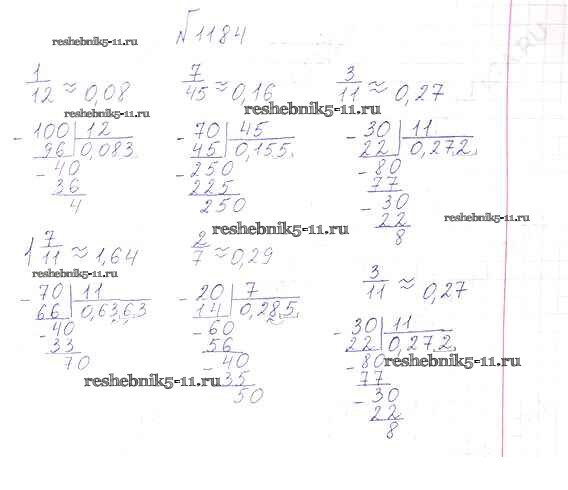 №1184
reshebnik5-11.ru
1/12 ≈ 0,08
7/45 ≈ 0,16
3/11 ≈ 0,27
reshebnik5-11.ru
reshebnik5-11.ru
- 100 | 12
96 | 0,083
- 40
36
4
- 70 | 45
45 | 0,155
- 250
225
250
- 30 | 11
22 | 0,272
- 80
77
- 30
22
8
reshebnik5-11.ru
reshebnik5-11.ru
1 7/11 ≈ 1,64
2/7 ≈ 0,29
3/11 ≈ 0,27
reshebnik5-11.ru
- 70 | 11
66 | 0,6363
- 40
33
70
- 20 | 7
14 | 0,285
- 60
56
- 40
35
50
- 30 | 11
22 | 0,272
- 80
77
- 30
22
8
reshebnik5-11.ru
reshebnik5-11.ru